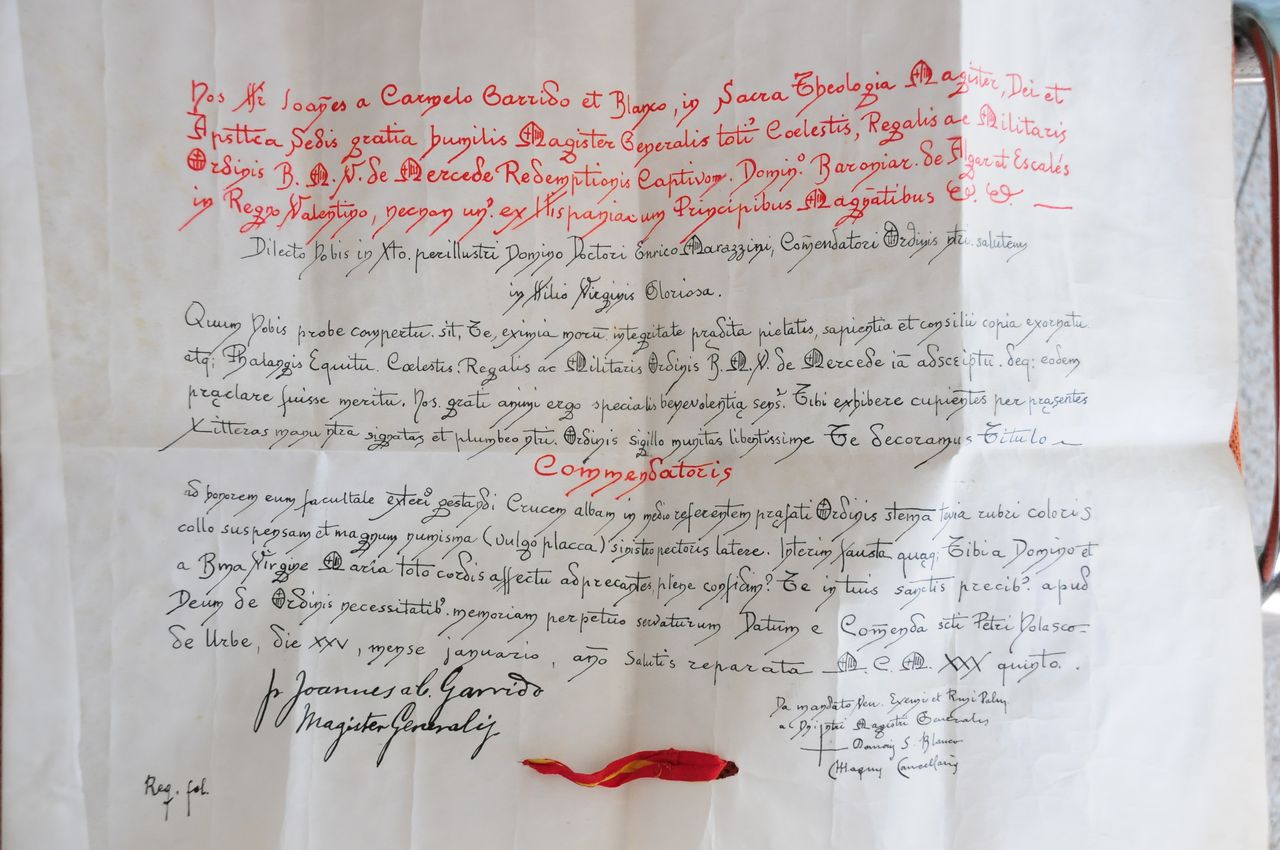 Nos Fr Joañes a Carmelo Garrido et Blanco, in Sacra Theologia Magister, Dei et
Apsttca Sedis gratia humilis Magister Generalis toti⁹ Coelestis, Regalis ac Militaris
Ordinis B. M. V. de Mercede Redemptionis Captivom. Domin⁹. Baroniar. de Algar et Escalés
in Regno Valentino, necnon un⁹. ex Hispaniarum Principibus Magñatibus &. &. —
Dilecto Nobis in Xto. perillustri Domino Doctori Enrico Marazzini, Comẽndatori Ordinis ñtri. salutem
in Filio Virginis Gloriosa.
Quum Nobis probe compertu. sit, Te, eximia morũ integritate prædita pietatis, sapientia et consilii copia exornatu.
atq; Phalangis Equitu. Coelestis. Regalis ac Militaris Ordinis B. M. V. de Mercede iã adscriptu. deq; eodem
præclare fuisse meritu. Nos. grati animi ergo specialis benevolentiæ sens⁹. Tibi exhibere cupientes per præsentes
Litteras manu ñtra signatas et plumbeo ntri. Ordinis sigillo munitas libentissime Te decoramus Titulo —
Commendatoris
ad honorem cum facultate exteri⁹ gestandi Crucem albam in medio referentem præfati Ordinis stema tænia rubri coloris
collo suspensam et magnum numisma (vulgo placca) sinistro pectoris latere. Interim fausta quæq; Tibi a Domino et
a Bma Virgine Maria toto cordis affectu adprecantes, plene confidim⁹ Te in tuis sanctis precib⁹. apud
Deum de Ordinis necessitatib⁹. memoriam perpetuo servaturum Datum e Comẽnda scti Petri Nolasco-
de Urbe, die XXV, mense januario, año Salutis reparata M. C. M. XXX quinto.
fr Joannes a C. Garrido
Magister Generalis
Da mandato Ven. Exemi et Rmi Palm
a Dñi ñtri Magistri Generalis
S. Blanco
Magnus Cancellariy
Reg. fol.